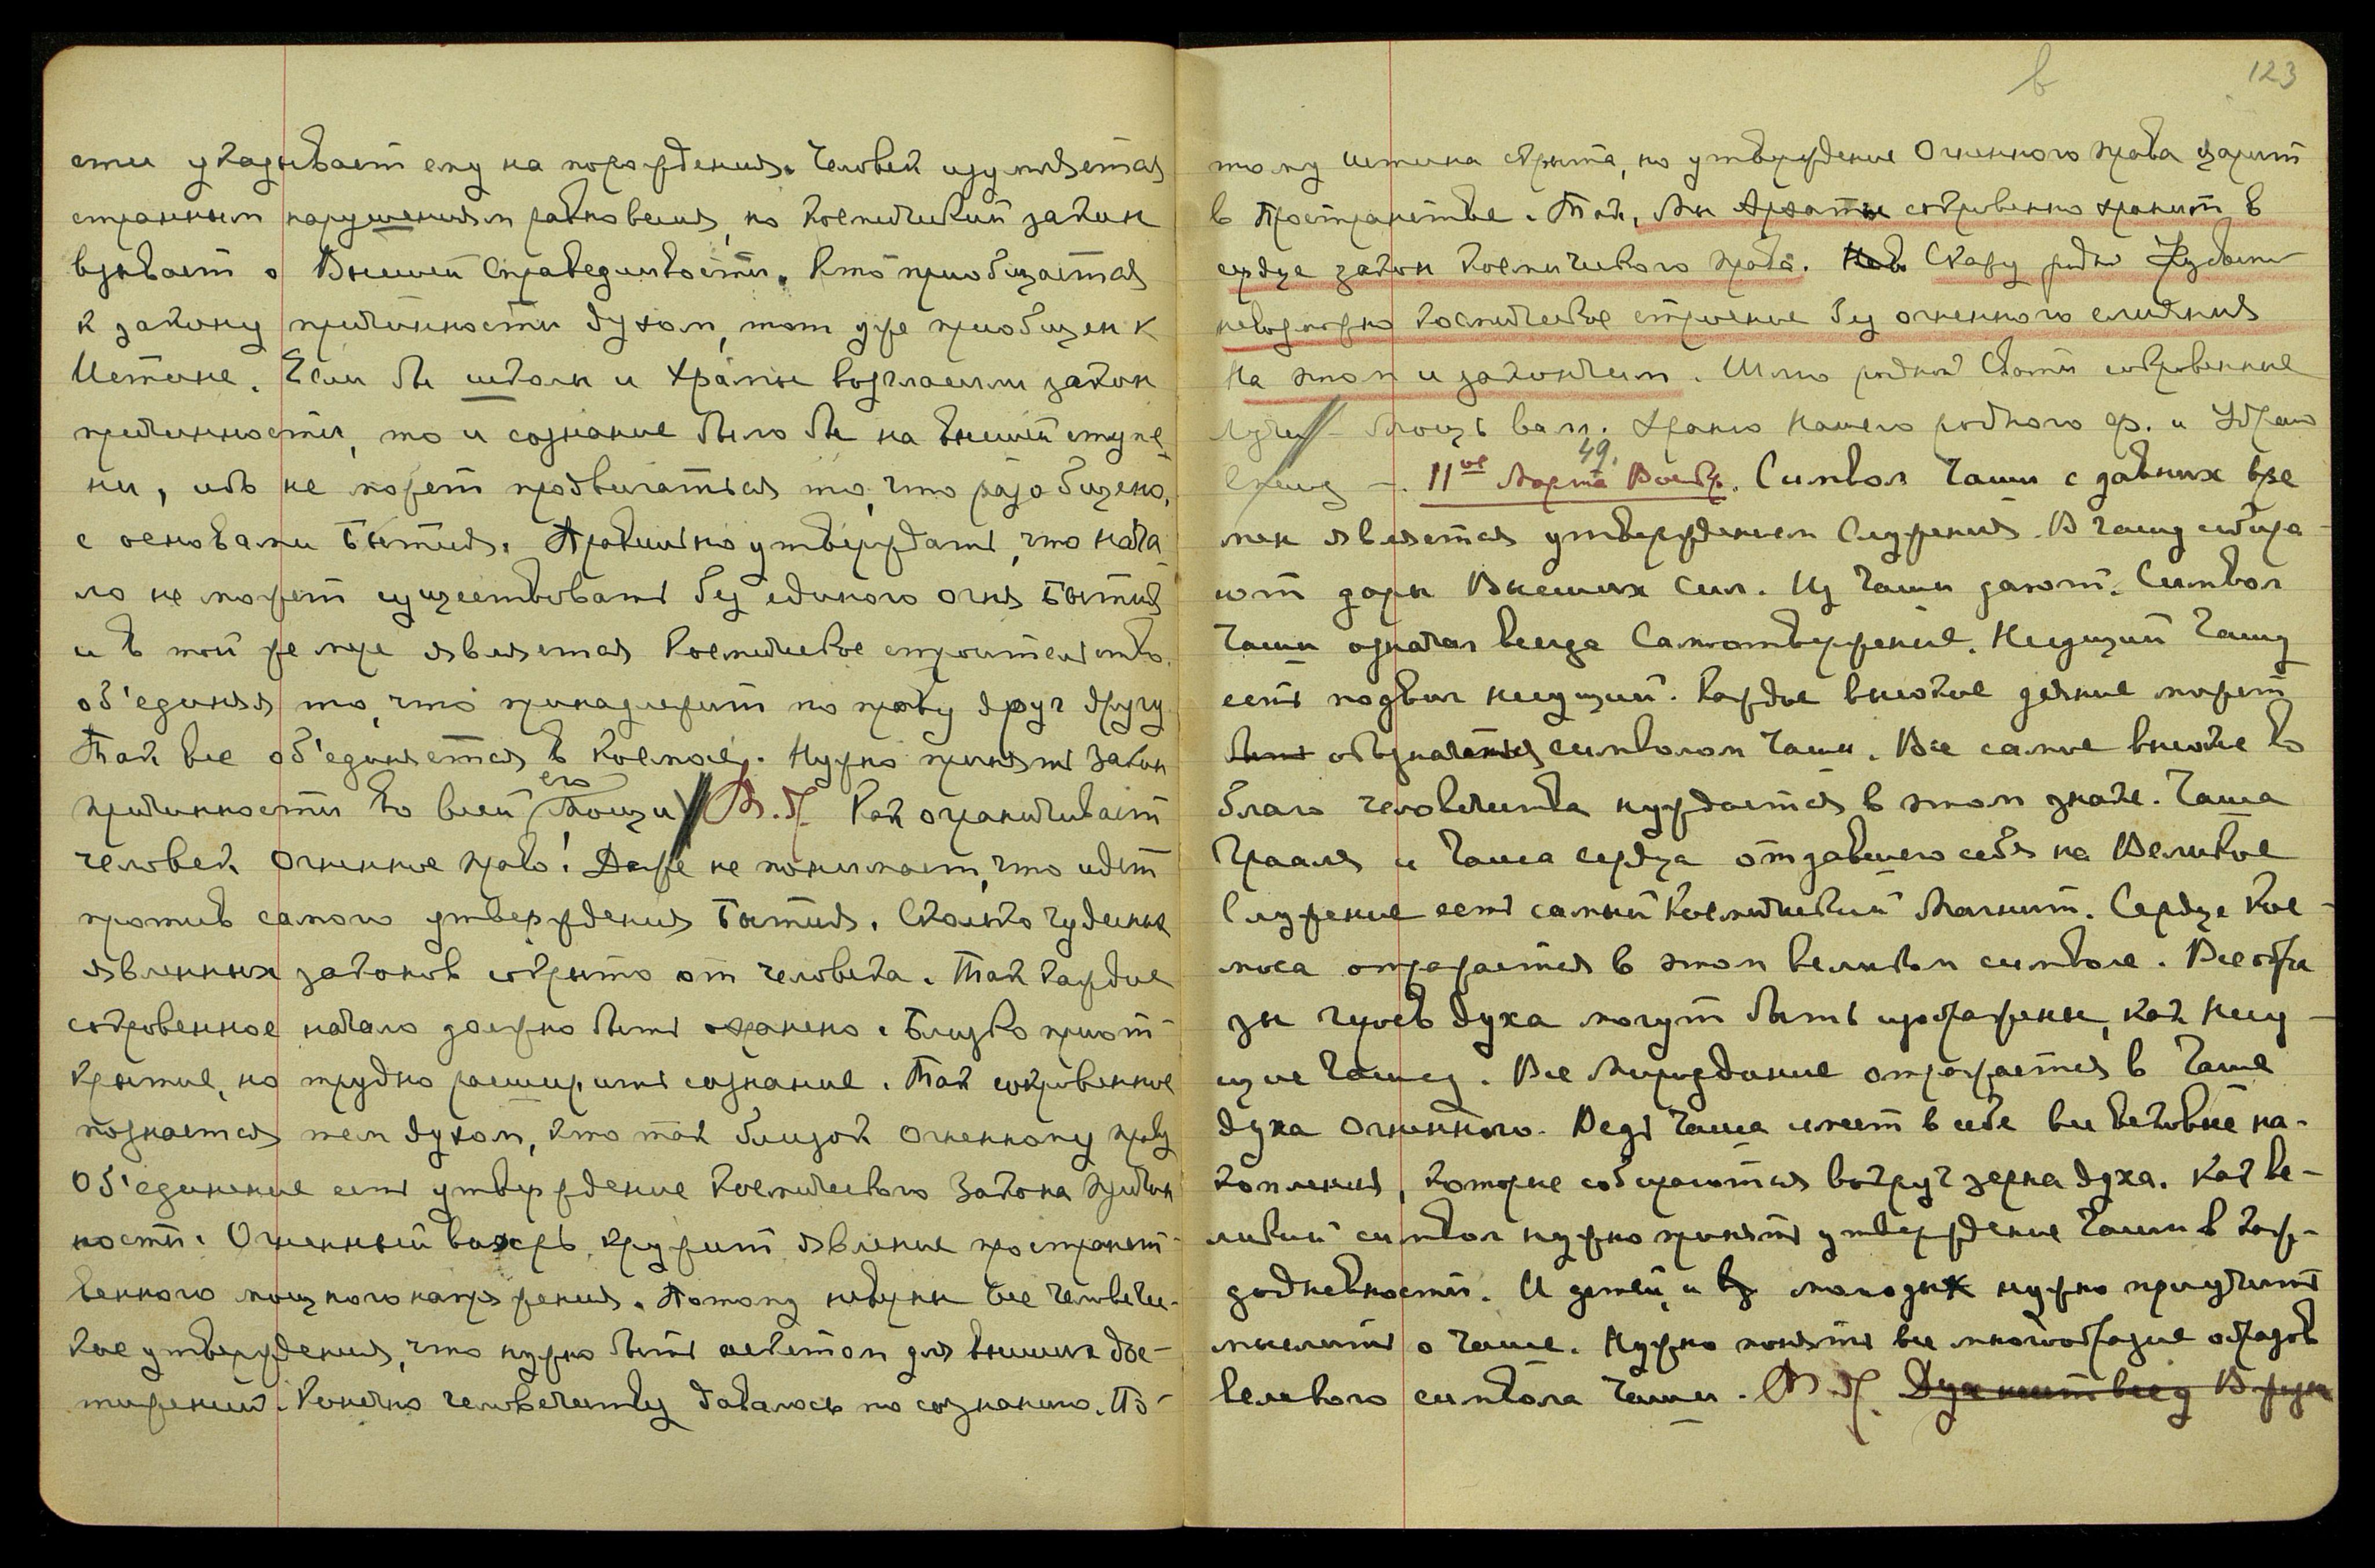 сти указывает ему на порождения. Человек изумляется
странным нарушениям равновесия, но Космический закон
взывает о Высшей Справедливости. Кто приобщается
к закону причинности духом, тот уже приобщен к
Истине. Если бы школы и храмы возглашали закон
причинности, то и сознание было бы на высшей ступе
ни, ибо не может продвигаться то, что разобщено,
с основами Бытия. Правильно утверждать, что нача
ло не может существовать без единого огня Бытия
и в той же мере является Космическое строительство.
об'единяя то, что принадлежит по праву друг другу
Так все об'единяется в Космосе. Нужно принять закон
его
причинности во всей Мощи // В. П. Как ограничивает
человек Огненное право! Даже не понимает, что идет
против самого утверждения Бытия. Сколько чудесных
явленных законов сокрыто от человека. Так каждое
сокровенное начало должно быть охранено. Близко приот-
крытие, но трудно расширить сознание. Так сокровенное
познается тем духом, кто так близок Огненному праву
Об'единение есть утверждение Космического Закона Причин
ности. Огненный вихрь кружит явление пространст-
венного мощного напряжения. Потому неверны все человече-
ские утверждения, что нужно быть аскетом для высших дос-
тижений. Конечно человечеству давалось по сознанию. По-
в 123
тому истина скрыта, но утверждение Огненного права царит
в Пространстве. Так, Мы Архаты сокровенно хранит в
сердце закон Космического права. Скажу родные
невозможно космическое строение без огненного слияния
На этом и закончим. Шлю родной Свати сокровенные
Лучи // Мощь вам. Храню Нашего родного Ф. и Удраю
49.
11ое Марта Воскр. Символ Чаши с давних вре
мен является утверждением Служения. В Чашу собира-
ют дары Высших Сил. Из Чаши дают. Символ
Чаши означал всегда Самоотвержение. Несущий Чашу
есть подвиг несущий. Каждое высокое деяние может
быть обозначается символом Чаши. Все самое высокое во
благо человечества нуждается в этом знаке. Чаша
Грааля и Чаша сердца отдавшего себя на Великое
Служение есть самый Космический Магнит. Сердце Кос-
моса отражается в этом великом символе. Все обра
зы героев духа могут быть изображены, как Несу-
щие Чашу. Все Мироздание отражается в Чаше
духа Огненного. Ведь Чаша имеет в себе все вековые на-
копления, которые собираются вокруг зерна духа. Как ве-
ликий символ нужно принять утверждение Чаши в каж-
додневности. И детей и молодых нужно приучить
мыслить о Чаше. Нужно понять все многообразие образов
великого символа Чаши. В. П.